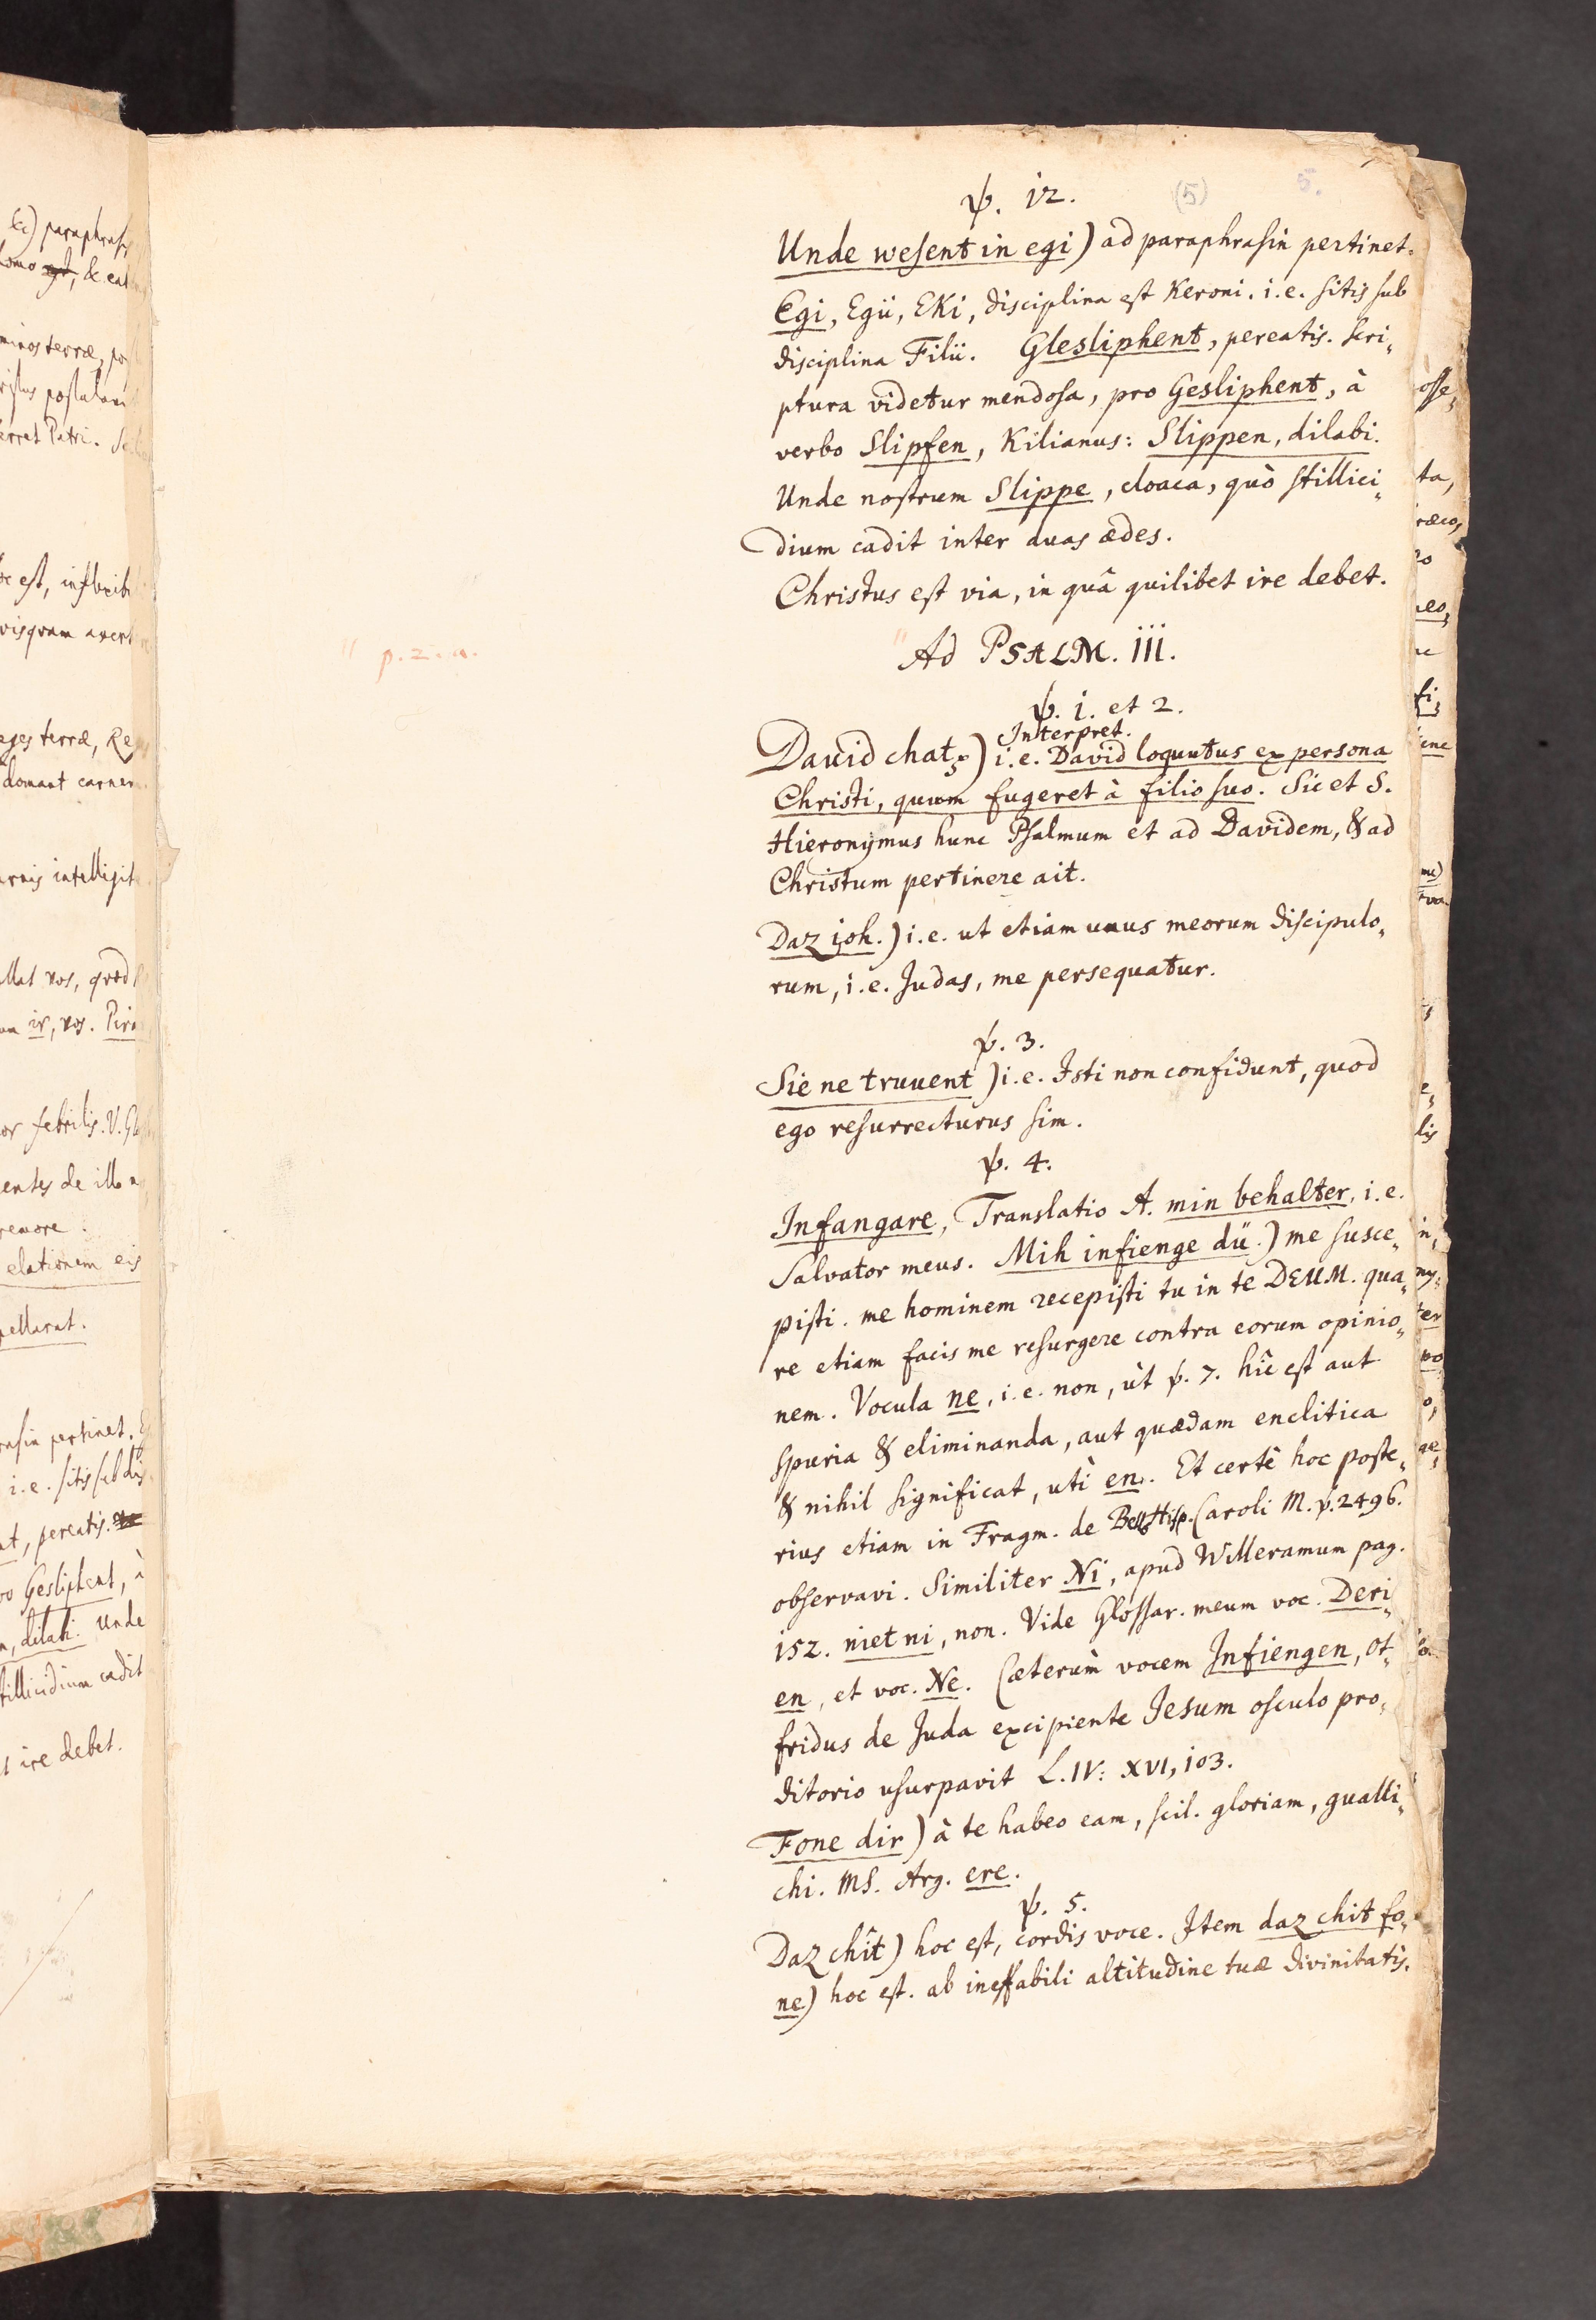 (5) 5.
ꝟ. 12.
Unde wesent in egi) ad paraphrasin pertinet.
Egi, Egii, EKi, disciplina est Keroni. i.e. sitis sub
disciplina Filii. Glesliphent, pereatis. scri„
ptura videtur mendosa, pro Gesliphent, à
verbo Slipfen, Kilianus: Slippen, dilabi.
Unde nostrum Slippe, cloaca, quò stillici„
dium cadit inter duas ædes.
Christus est via, in quâ quilibet ire debet.
" p. 2. a.
" Ad PSALM. III.
ꝟ. 1. et 2.
Interpret.
David chat) i.e. David loquutus ex persona
Christi, quum fugeret à filio suo. Sic et S.
Hieronymus hunc Psalmum et ad Davidem, & ad
Christum pertinere ait.
Daz ioh.) i.e. ut etiam unus meorum discipulo„
rum, i.e. Judas, me persequatur.
ꝟ. 3.
Sie ne truuent) i.e. Isti non confidunt, quod
ego resurrecturus sim.
ꝟ. 4.
Infangare, Translatio A. min behalter, i.e.
Salvator meus. Mih infienge dü.) me susce„
pisti. me hominem recepisti tu in te DEUM. qua„
re etiam facis me resurgere contra eorum opinio„
nem. Vocula ne, i.e. non, ùt ꝟ. 7. hîc est aut
spuria & eliminanda, aut quædam enclitica
& nihil significat, utì en. Et certè hoc poste„
rius etiam in Fragm. de Bello Hisp. Caroli M. ꝟ. 2496.
observavi. Similiter Ni, apud Willeramum pag.
152. niet ni, non. Vide Glossar. meum voc. Deri„
en, et voc. Ne. Cæterùm vocem Infiengen, Ot„
fridus de Juda excipiente Jesum osculo pro„
ditorio usurpavit L. IV: XVI, 103.
Fone dir) à te habeo eam, scil. gloriam, gualli„
chi. MS. Arg. ere.
ꝟ. 5.
Daz chît) hoc est, cordis voce. Item daz chit fo„
ne) hoc est. ab ineffabili altitudine tuæ divinitatis.